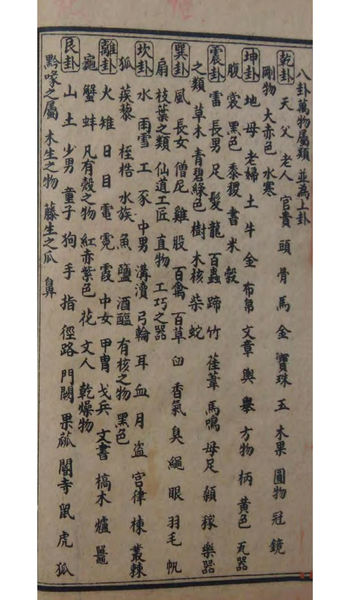 八卦萬物屬類 並為上卦
乾卦 天 父 老人 官貴 頭 骨 馬 金 寶珠 玉 木果 圓物 冠 鏡
剛物 大赤色 水寒
坤卦 地 母 老婦 土 牛 金 布帛 文章 輿 轝 方物 柄 黃色 瓦器
腹 裳 黑色 黍稷 書 米 穀
震卦 雷 長男 足 髮 龍 百蟲 蹄 竹 萑葦 馬鳴 母足 顙 稼 樂器
之類 草木 青碧綠色 樹 木核 柴 蛇
巽卦 風 長女 僧尼 雞 股 百禽 百草 臼 香氣 臭 繩 眼 羽毛 帆
扇 枝葉之類 仙道 工匠 直物 工巧之器
坎卦 水 雨雪 工 豕 中男 溝瀆 弓輪 耳 血 月 盜 宮律 棟 叢棘
狐 蒺藜 桎梏 水族 魚 鹽 酒醢 有核之物 黑色
離卦 火 雉 日 目 電 霓 霞 中女 甲冑 戈兵 文書 槁木 爐 鼉
龜 蟹 蚌 凡有殼之物 紅赤紫色 花 文人 乾燥物
艮卦 山 土 少男 童子 狗 手 指 徑路 門闕 果蓏 閽寺 鼠 虎 狐
黔喙之屬 木生之物 藤生之瓜 鼻